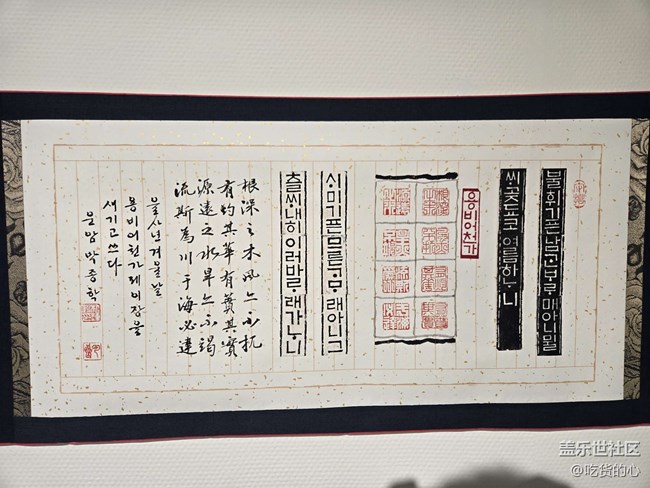 불휘기픈남ᄀᆞᆫᄇᆞᄅᆞ매아니뮐
ᄊᆡ곶됴코 여름하ᄂᆞ니
용비어천가
ᄉᆡ미기픈므른ᄀᆞᄆᆞ래아니그
츨ᄊᆡ내히이러바ᄅᆞ래가ᄂᆞ니
根深之木風亦不扤
有灼其華有蕡其實
源遠之水旱亦不竭
流斯為川于海必達
을사년겨울날
용비어천가제이장을
새기고쓰다
박종학
盖乐世社区
@吃货的心